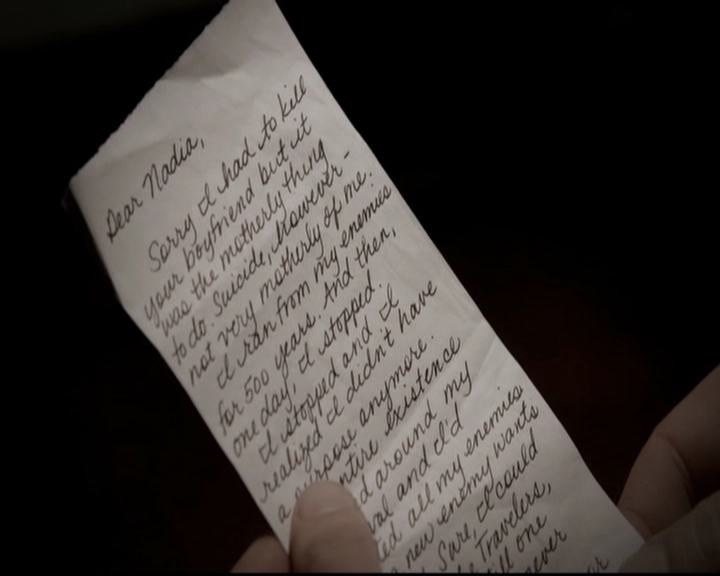 Dear Nadia,
Sorry I had to kill
your boyfriend but it
was the motherly thing
to do. Suicide, however -
not very motherly of me.
I ran from my enemies
for 500 years. And then,
one day, I stopped.
I stopped and I
realized I didn't have
a purpose anymore.
entire existence
around my
and I'd
all my enemies
new enemy wants
Sure, I could
Travelers,
one